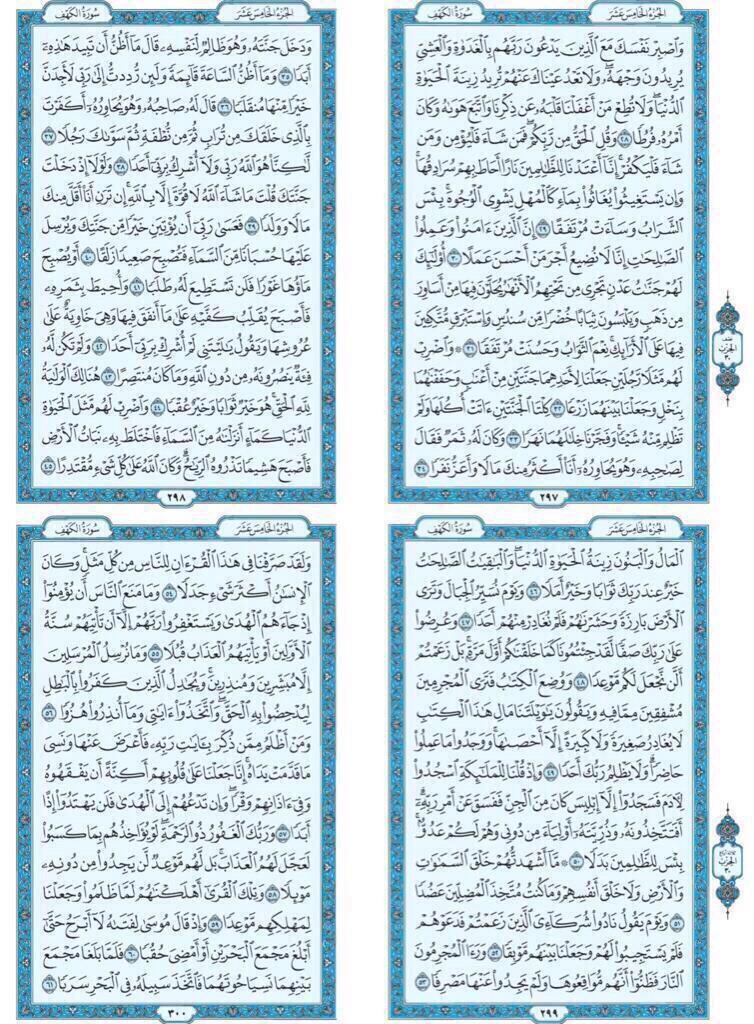 الجزء الخامس عشر
سورة الكهف
وَٱصۡبِرۡ نَفۡسَكَ مَعَ ٱلَّذِينَ يَدۡعُونَ رَبَّهُم بِٱلۡغَدَوٰةِ وَٱلۡعَشِيِّ
يُرِيدُونَ وَجۡهَهُۥۖ وَلَا تَعۡدُ عَيۡنَاكَ عَنۡهُمۡ تُرِيدُ زِينَةَ ٱلۡحَيَوٰةِ
ٱلدُّنۡيَاۖ وَلَا تُطِعۡ مَنۡ أَغۡفَلۡنَا قَلۡبَهُۥ عَن ذِكۡرِنَا وَٱتَّبَعَ هَوَىٰهُ وَكَانَ
أَمۡرُهُۥ فُرُطٗا ٢٨ وَقُلِ ٱلۡحَقُّ مِن رَّبِّكُمۡۖ فَمَن شَآءَ فَلۡيُؤۡمِن وَمَن
شَآءَ فَلۡيَكۡفُرۡۚ إِنَّآ أَعۡتَدۡنَا لِلظَّٰلِمِينَ نَارًا أَحَاطَ بِهِمۡ سُرَادِقُهَاۚ
وَإِن يَسۡتَغِيثُواْ يُغَاثُواْ بِمَآءٖ كَٱلۡمُهۡلِ يَشۡوِي ٱلۡوُجُوهَۚ بِئۡسَ
ٱلشَّرَابُ وَسَآءَتۡ مُرۡتَفَقًا ٢٩ إِنَّ ٱلَّذِينَ ءَامَنُواْ وَعَمِلُواْ
ٱلصَّٰلِحَٰتِ إِنَّا لَا نُضِيعُ أَجۡرَ مَنۡ أَحۡسَنَ عَمَلًا ٣٠ أُوْلَٰٓئِكَ
لَهُمۡ جَنَّٰتُ عَدۡنٖ تَجۡرِي مِن تَحۡتِهِمُ ٱلۡأَنۡهَٰرُ يُحَلَّوۡنَ فِيهَا مِنۡ أَسَاوِرَ
مِن ذَهَبٖ وَيَلۡبَسُونَ ثِيَابًا خُضۡرٗا مِّن سُندُسٖ وَإِسۡتَبۡرَقٖ مُّتَّكِـِٔينَ
فِيهَا عَلَى ٱلۡأَرَآئِكِۚ نِعۡمَ ٱلثَّوَابُ وَحَسُنَتۡ مُرۡتَفَقٗا ٣١ ۞ وَٱضۡرِبۡ
لَهُم مَّثَلٗا رَّجُلَيۡنِ جَعَلۡنَا لِأَحَدِهِمَا جَنَّتَيۡنِ مِنۡ أَعۡنَٰبٖ وَحَفَفۡنَٰهُمَا
بِنَخۡلٖ وَجَعَلۡنَا بَيۡنَهُمَا زَرۡعٗا ٣٢ كِلۡتَا ٱلۡجَنَّتَيۡنِ ءَاتَتۡ أُكُلَهَا وَلَمۡ
تَظۡلِم مِّنۡهُ شَيۡـٔٗاۚ وَفَجَّرۡنَا خِلَٰلَهُمَا نَهَرٗا ٣٣ وَكَانَ لَهُۥ ثَمَرٞ فَقَالَ
لِصَٰحِبِهِۦ وَهُوَ يُحَاوِرُهُۥٓ أَنَا۠ أَكۡثَرُ مِنكَ مَالٗا وَأَعَزُّ نَفَرٗا ٣٤
٢٩٧
نصف الحزب ٣٠
الجزء الخامس عشر
سورة الكهف
وَدَخَلَ جَنَّتَهُۥ وَهُوَ ظَالِمٞ لِّنَفۡسِهِۦ قَالَ مَآ أَظُنُّ أَن تَبِيدَ هَٰذِهِۦٓ
أَبَدٗا ٣٥ وَمَآ أَظُنُّ ٱلسَّاعَةَ قَآئِمَةٗ وَلَئِن رُّدِدتُّ إِلَىٰ رَبِّي لَأَجِدَنَّ
خَيۡرٗا مِّنۡهَا مُنقَلَبٗا ٣٦ قَالَ لَهُۥ صَاحِبُهُۥ وَهُوَ يُحَاوِرُهُۥٓ أَكَفَرۡتَ
بِٱلَّذِي خَلَقَكَ مِن تُرَابٖ ثُمَّ مِن نُّطۡفَةٖ ثُمَّ سَوَّىٰكَ رَجُلٗا ٣٧
لَّٰكِنَّا۠ هُوَ ٱللَّهُ رَبِّي وَلَآ أُشۡرِكُ بِرَبِّيٓ أَحَدٗا ٣٨ وَلَوۡلَآ إِذۡ دَخَلۡتَ
جَنَّتَكَ قُلۡتَ مَا شَآءَ ٱللَّهُ لَا قُوَّةَ إِلَّا بِٱللَّهِۚ إِن تَرَنِ أَنَا۠ أَقَلَّ مِنكَ
مَالٗا وَوَلَدٗا ٣٩ فَعَسَىٰ رَبِّيٓ أَن يُؤۡتِيَنِ خَيۡرٗا مِّن جَنَّتِكَ وَيُرۡسِلَ
عَلَيۡهَا حُسۡبَانٗا مِّنَ ٱلسَّمَآءِ فَتُصۡبِحَ صَعِيدٗا زَلَقًا ٤٠ أَوۡ يُصۡبِحَ
مَآؤُهَا غَوۡرٗا فَلَن تَسۡتَطِيعَ لَهُۥ طَلَبٗا ٤١ وَأُحِيطَ بِثَمَرِهِۦ
فَأَصۡبَحَ يُقَلِّبُ كَفَّيۡهِ عَلَىٰ مَآ أَنفَقَ فِيهَا وَهِيَ خَاوِيَةٌ عَلَىٰ
عُرُوشِهَا وَيَقُولُ يَٰلَيۡتَنِي لَمۡ أُشۡرِكۡ بِرَبِّيٓ أَحَدٗا ٤٢ وَلَمۡ تَكُن لَّهُۥ
فِئَةٞ يَنصُرُونَهُۥ مِن دُونِ ٱللَّهِ وَمَا كَانَ مُنتَصِرًا ٤٣ هُنَالِكَ ٱلۡوَلَٰيَةُ
لِلَّهِ ٱلۡحَقِّۚ هُوَ خَيۡرٞ ثَوَابٗا وَخَيۡرٌ عُقۡبٗا ٤٤ وَٱضۡرِبۡ لَهُم مَّثَلَ ٱلۡحَيَوٰةِ
ٱلدُّنۡيَا كَمَآءٍ أَنزَلۡنَٰهُ مِنَ ٱلسَّمَآءِ فَٱخۡتَلَطَ بِهِۦ نَبَاتُ ٱلۡأَرۡضِ
فَأَصۡبَحَ هَشِيمٗا تَذۡرُوهُ ٱلرِّيَٰحُۗ وَكَانَ ٱللَّهُ عَلَىٰ كُلِّ شَيۡءٖ مُّقۡتَدِرًا ٤٥
٢٩٨
الجزء الخامس عشر
سورة الكهف
ٱلۡمَالُ وَٱلۡبَنُونَ زِينَةُ ٱلۡحَيَوٰةِ ٱلدُّنۡيَاۖ وَٱلۡبَٰقِيَٰتُ ٱلصَّٰلِحَٰتُ
خَيۡرٌ عِندَ رَبِّكَ ثَوَابٗا وَخَيۡرٌ أَمَلٗا ٤٦ وَيَوۡمَ نُسَيِّرُ ٱلۡجِبَالَ وَتَرَى
ٱلۡأَرۡضَ بَارِزَةٗ وَحَشَرۡنَٰهُمۡ فَلَمۡ نُغَادِرۡ مِنۡهُمۡ أَحَدٗا ٤٧ وَعُرِضُواْ
عَلَىٰ رَبِّكَ صَفّٗا لَّقَدۡ جِئۡتُمُونَا كَمَا خَلَقۡنَٰكُمۡ أَوَّلَ مَرَّةِۭۚ بَلۡ زَعَمۡتُمۡ
أَلَّن نَّجۡعَلَ لَكُم مَّوۡعِدٗا ٤٨ وَوُضِعَ ٱلۡكِتَٰبُ فَتَرَى ٱلۡمُجۡرِمِينَ
مُشۡفِقِينَ مِمَّا فِيهِ وَيَقُولُونَ يَٰوَيۡلَتَنَا مَالِ هَٰذَا ٱلۡكِتَٰبِ
لَا يُغَادِرُ صَغِيرَةٗ وَلَا كَبِيرَةً إِلَّآ أَحۡصَىٰهَاۚ وَوَجَدُواْ مَا عَمِلُواْ
حَاضِرٗاۗ وَلَا يَظۡلِمُ رَبُّكَ أَحَدٗا ٤٩ وَإِذۡ قُلۡنَا لِلۡمَلَٰٓئِكَةِ ٱسۡجُدُواْ
لِأٓدَمَ فَسَجَدُوٓاْ إِلَّآ إِبۡلِيسَ كَانَ مِنَ ٱلۡجِنِّ فَفَسَقَ عَنۡ أَمۡرِ رَبِّهِۦٓۗ
أَفَتَتَّخِذُونَهُۥ وَذُرِّيَّتَهُۥٓ أَوۡلِيَآءَ مِن دُونِي وَهُمۡ لَكُمۡ عَدُوُّۢۚ
بِئۡسَ لِلظَّٰلِمِينَ بَدَلٗا ٥٠ ۞ مَّآ أَشۡهَدتُّهُمۡ خَلۡقَ ٱلسَّمَٰوَٰتِ
وَٱلۡأَرۡضِ وَلَا خَلۡقَ أَنفُسِهِمۡ وَمَا كُنتُ مُتَّخِذَ ٱلۡمُضِلِّينَ عَضُدٗا
٥١ وَيَوۡمَ يَقُولُ نَادُواْ شُرَكَآءِيَ ٱلَّذِينَ زَعَمۡتُمۡ فَدَعَوۡهُمۡ
فَلَمۡ يَسۡتَجِيبُواْ لَهُمۡ وَجَعَلۡنَا بَيۡنَهُم مَّوۡبِقٗا ٥٢ وَرَءَا ٱلۡمُجۡرِمُونَ
ٱلنَّارَ فَظَنُّوٓاْ أَنَّهُم مُّوَاقِعُوهَا وَلَمۡ يَجِدُواْ عَنۡهَا مَصۡرِفٗا ٥٣
٢٩٩
ثلاثة أرباع الحزب ٣٠
الجزء الخامس عشر
سورة الكهف
وَلَقَدۡ صَرَّفۡنَا فِي هَٰذَا ٱلۡقُرۡءَانِ لِلنَّاسِ مِن كُلِّ مَثَلٖۚ وَكَانَ
ٱلۡإِنسَٰنُ أَكۡثَرَ شَيۡءٖ جَدَلٗا ٥٤ وَمَا مَنَعَ ٱلنَّاسَ أَن يُؤۡمِنُوٓاْ
إِذۡ جَآءَهُمُ ٱلۡهُدَىٰ وَيَسۡتَغۡفِرُواْ رَبَّهُمۡ إِلَّآ أَن تَأۡتِيَهُمۡ سُنَّةُ
ٱلۡأَوَّلِينَ أَوۡ يَأۡتِيَهُمُ ٱلۡعَذَابُ قُبُلٗا ٥٥ وَمَا نُرۡسِلُ ٱلۡمُرۡسَلِينَ
إِلَّا مُبَشِّرِينَ وَمُنذِرِينَۚ وَيُجَٰدِلُ ٱلَّذِينَ كَفَرُواْ بِٱلۡبَٰطِلِ
لِيُدۡحِضُواْ بِهِ ٱلۡحَقَّۖ وَٱتَّخَذُوٓاْ ءَايَٰتِي وَمَآ أُنذِرُواْ هُزُوٗا ٥٦
وَمَنۡ أَظۡلَمُ مِمَّن ذُكِّرَ بِـَٔايَٰتِ رَبِّهِۦ فَأَعۡرَضَ عَنۡهَا وَنَسِيَ
مَا قَدَّمَتۡ يَدَاهُۚ إِنَّا جَعَلۡنَا عَلَىٰ قُلُوبِهِمۡ أَكِنَّةً أَن يَفۡقَهُوهُ
وَفِيٓ ءَاذَانِهِمۡ وَقۡرٗاۖ وَإِن تَدۡعُهُمۡ إِلَى ٱلۡهُدَىٰ فَلَن يَهۡتَدُوٓاْ إِذًا
أَبَدٗا ٥٧ وَرَبُّكَ ٱلۡغَفُورُ ذُو ٱلرَّحۡمَةِۖ لَوۡ يُؤَاخِذُهُم بِمَا كَسَبُواْ
لَعَجَّلَ لَهُمُ ٱلۡعَذَابَۚ بَل لَّهُم مَّوۡعِدٞ لَّن يَجِدُواْ مِن دُونِهِۦ
مَوۡئِلٗا ٥٨ وَتِلۡكَ ٱلۡقُرَىٰٓ أَهۡلَكۡنَٰهُمۡ لَمَّا ظَلَمُواْ وَجَعَلۡنَا
لِمَهۡلِكِهِم مَّوۡعِدٗا ٥٩ وَإِذۡ قَالَ مُوسَىٰ لِفَتَىٰهُ لَآ أَبۡرَحُ حَتَّىٰٓ
أَبۡلُغَ مَجۡمَعَ ٱلۡبَحۡرَيۡنِ أَوۡ أَمۡضِيَ حُقُبٗا ٦٠ فَلَمَّا بَلَغَا مَجۡمَعَ
بَيۡنِهِمَا نَسِيَا حُوتَهُمَا فَٱتَّخَذَ سَبِيلَهُۥ فِي ٱلۡبَحۡرِ سَرَبٗا ٦١
٣٠٠